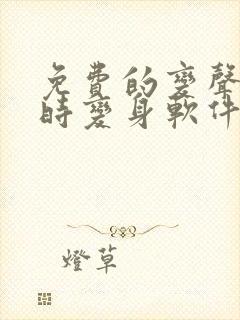 免費的變聲
時變身軟件
燈草